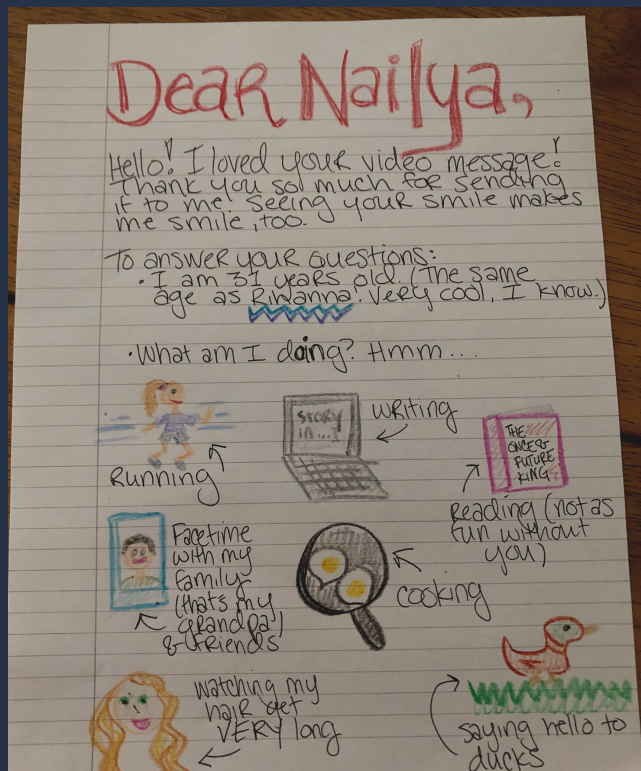 Dear Nailya,
Hello! I loved your video message!
Thank you so much for sending
it to me. Seeing your smile makes
me smile, too.
To answer your questions:
• I am 31 years old. (The same
age as Rihanna. Very cool, I know.)
• What am I doing? Hmm...
Running
STORY
IN...T
writing
THE
ONCE &
FUTURE
KING
Reading (not as
fun without
you)
Facetime
with my
family
(that's my
grandpa)
& friends
cooking
watching my
hair get
VERY long
saying hello to
ducks